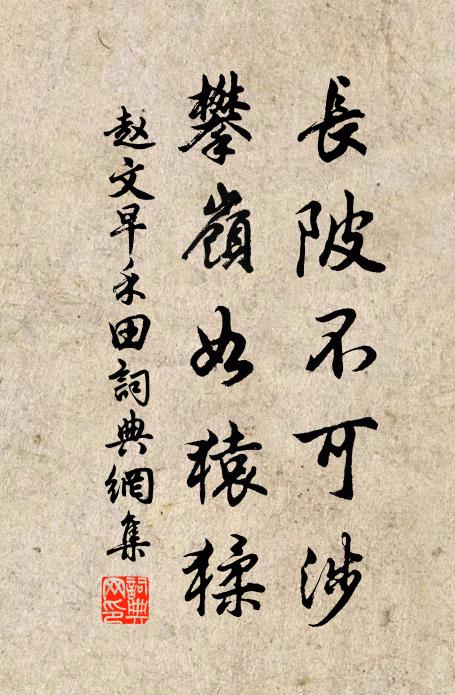 長陂不可涉
攀嶺如猿猱
赵文早禾田詞典網集
詞典网印